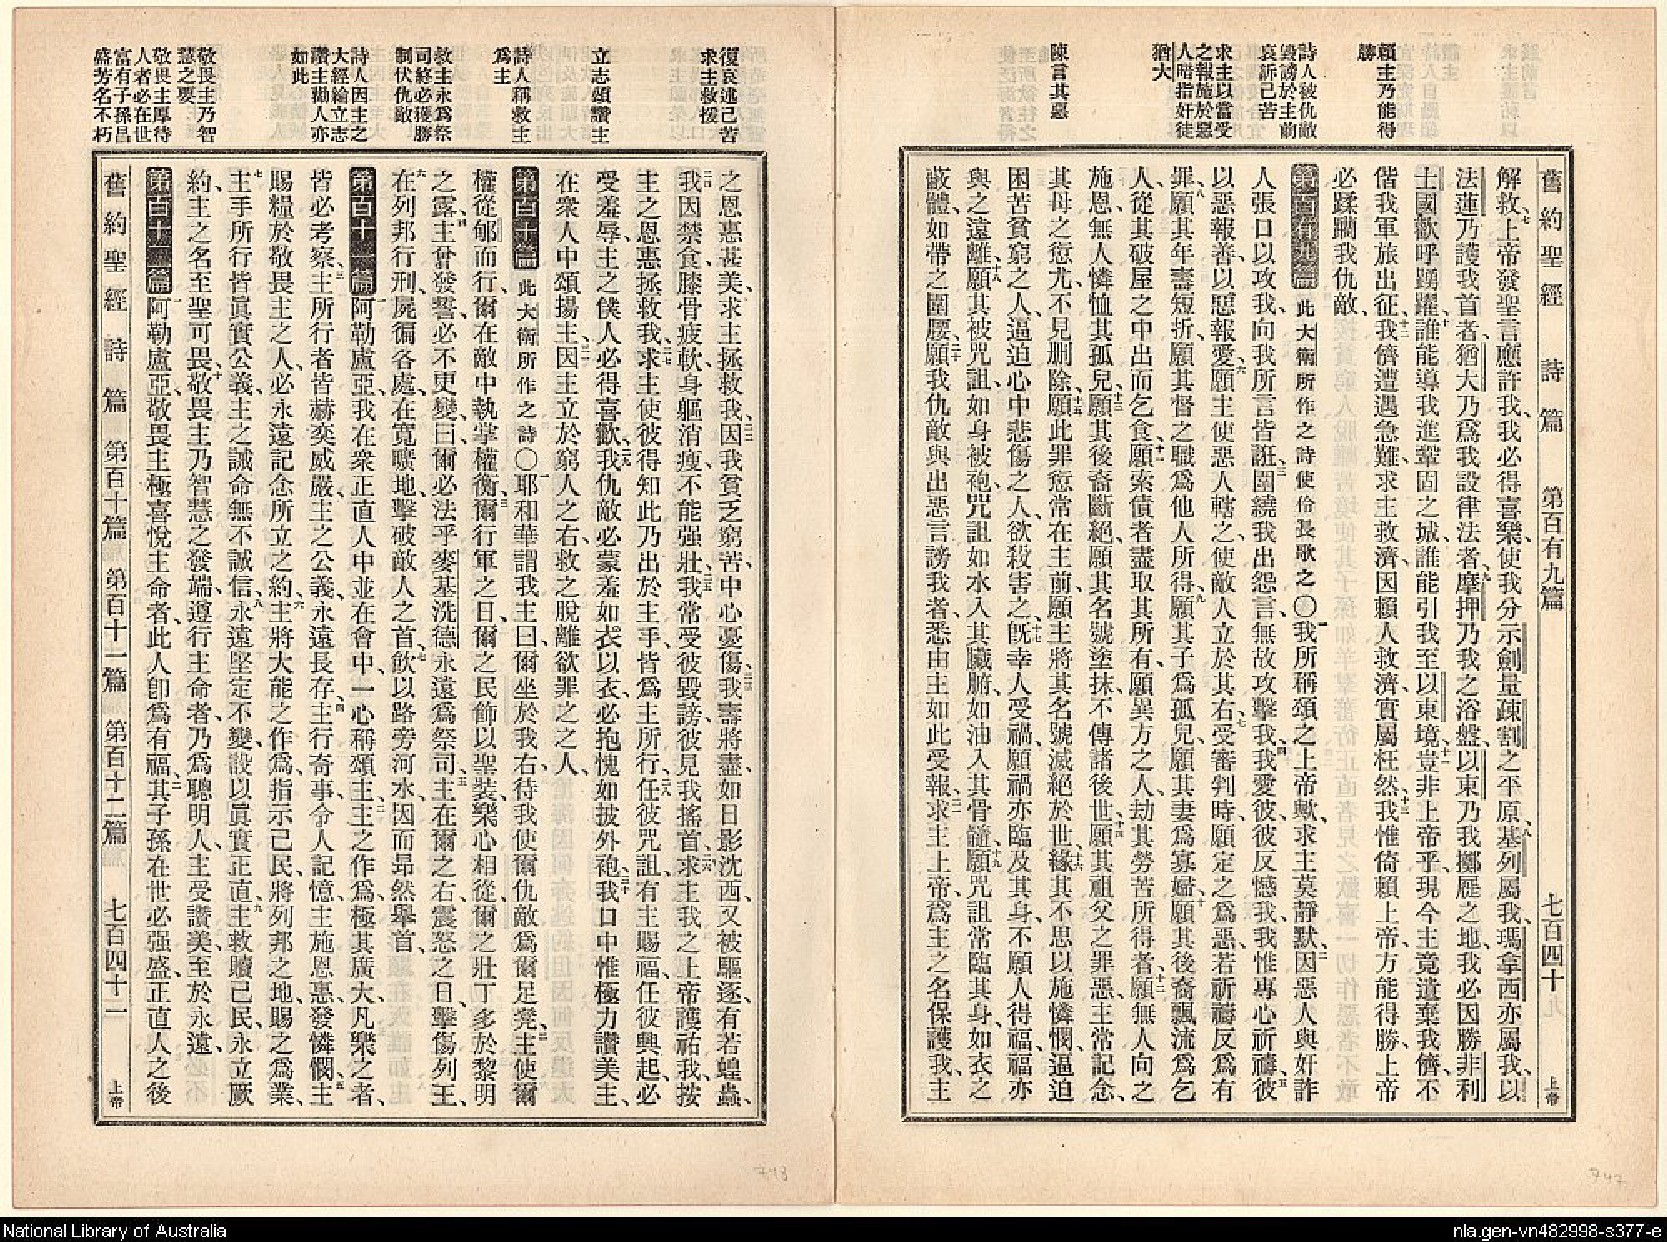 舊約聖經　詩篇　第百有九篇　七百四十　上帝
賴主乃能得
勝
詩人被仇敵
毀謗於主前
哀訴己苦
求主以當受
之報施於惡
人暗指奸徒
猶大
陳言其惡
解救、七上帝發聖言應許我、我必得喜樂、使我分示劍、量疎割之平原、八基列屬我、瑪拿西亦屬我、以
法蓮乃護我首者、猶大乃爲我設律法者、九摩押乃我之浴盤、以東乃我擲屣之地、我必因勝非利
士國歡呼踴躍、十誰能導我進鞏固之城、誰能引我至以東境、十一豈非上帝乎、現今主竟遺棄我儕、不
偕我軍旅出征、十二我儕遭遇急難、求主救濟、因賴人救濟、實屬枉然、十三我惟倚賴上帝、方能得勝、上帝
必蹂躪我仇敵、
第百有九篇　此大衛所作之詩使伶長歌之〇一我所稱頌之上帝歟、求主莫靜默、二因惡人與奸詐
人張口以攻我、向我所言皆誑、三圍繞我出怨言、無故攻擊我、四我愛彼、彼反憾我、我惟專心祈禱、五彼
以惡報善、以慝報愛、六願主使惡人轄之、使敵人立於其右、七受審判時、願定之爲惡、若祈禱反爲有
罪、八願其年壽短折、願其督之職爲他人所得、九願其子爲孤兒、願其妻爲寡婦、十願其後裔飄流爲乞
人、從其破屋之中出而乞食、十一願索債者盡取其所有、願異方之人、劫其勞苦所得者、十二願無人向之
施恩、無人憐恤其孤兒、十三願其後裔斷絕、願其名號塗抹、不傳諸後世、十四願其祖父之罪惡、主常記念、
其母之愆尤、不見刪除、十五願此罪愆常在主前、願主將其名號滅絕於世、十六緣其不思以施憐憫、逼迫
困苦貧窮之人、逼迫心中悲傷之人、欲殺害之、十七旣幸人受禍、願禍亦臨及其身、不願人得福、福亦
與之遠離、十八願其被咒詛、如身被袍、咒詛如水入其臟腑、如油入其骨髓、十九願咒詛常臨其身、如衣之
蔽體、如帶之圍腰、二十願我仇敵與出惡言謗我者、悉由主如此受報、二一求主上帝、爲主之名保護我、主
復哀述己苦
求主救援
立志頌讚主
詩人稱救主
爲主
救主永爲祭
司終必獲勝
制伏仇敵
詩人因主之
大經綸立志
讚主勸人亦
如此
敬畏主乃智
慧之要
敬畏主厚待
人者必在世
富有子孫昌
盛芳名不朽
之恩惠甚美、求主拯救我、二二因我貧乏窮苦、中心憂傷、二三我壽將盡、如日影沈西、又被驅逐、有若蝗蟲、
二四我因禁食、膝骨疲軟、身軀消瘦、不能强壯、二五我常受彼毀謗、彼見我搖首、二六求主我之上帝護祐我、按
主之恩惠拯救我、二七求主使彼得知此乃出於主手、皆爲主所行、二八任彼咒詛、有主賜福、任彼興起、必
受羞辱、主之僕人必得喜歡、二九我仇敵必蒙羞如衣以衣、必抱愧如披外袍、三十我口中惟極力讚美主、
在衆人中頌揚主、三一因主立於窮人之右、救之脫離欲罪之之人、
第百十篇　此大衛所作之詩〇耶和華謂我主曰、爾坐於我右、待我使爾仇敵爲爾足凳、二主使爾
權從郇而行、爾在敵中執掌權衡、三爾行軍之日、爾之民飾以聖裝、樂心相從、爾之壯丁多於黎明
之露、四主曾發誓、必不更變、曰、爾必法乎麥基洗德、永遠爲祭司、五主在爾之右、震怒之日、擊傷列王、
六在列邦行刑、屍徧各處、在寬曠地擊破敵人之首、七飲以路旁河水、因而昻然舉首、
第百十一篇　一阿勒盧亞、我在衆正直人中、並在會中、一心稱頌主、二主之作爲極其廣大、凡樂之者、
皆必考察、三主所行者、皆赫奕威嚴、主之公義、永遠長存、四主行奇事、令人記憶、主施恩惠、發憐憫、五主
賜糧於敬畏主之人、必永遠記念所立之約、六主將大能之作爲指示己民、將列邦之地賜之爲業、
七主手所行、皆眞實公義、主之誡命、無不誠信、八永遠堅定不變、設以眞實正直、九主救贖己民、永立厥
約、主之名至聖可畏、十敬畏主乃智慧之發端、遵行主命者、乃爲聰明人、主受讚美至於永遠、
第百十二篇　一阿勒盧亞、敬畏主極喜悅主命者、此人卽爲有福、二其子孫在世必强盛、正直人之後
舊約聖經　詩篇　第百十篇　第百十一篇　第百十二篇　七百四十一　上帝
743
747
National Library of Australia
nla.gen-vn482998-s377-e